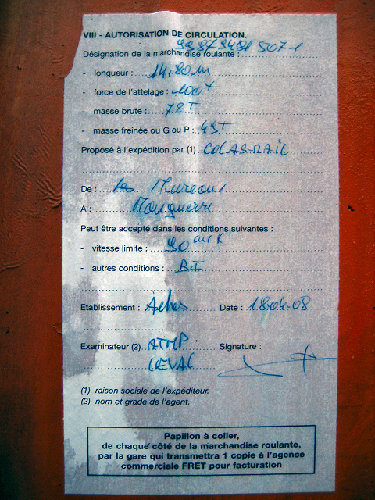 VIII - AUTORISATION DE CIRCULATION.
Désignation de la marchandise roulante :
- longueur : 14,80 m
- force de l'attelage : 100T
- masse brute : 78T
- masse freinée ou G ou P : 43T
Proposé à l'expédition par (1) COLAS-RAIL
De : Les Mureaux
A :
Peut être accepté dans les conditions suivantes :
- vitesse limite : 30
- autres conditions :
Etablissement : Achères Date : 18-04-08
Examinateur (2) Signature :
(1) raison sociale de l'expéditeur.
(2) nom et grade de l'agent.
Papillon à coller,
de chaque côté de la marchandise roulante,
par la gare qui transmettra 1 copie à l'agence
commerciale FRET pour facturation